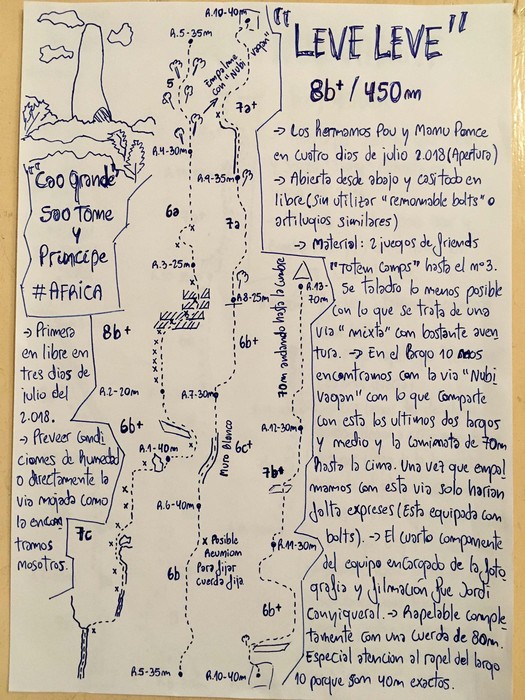 "LEVE LEVE"
8b+ / 450m
"Cao Grande"
Sao Tome
y
Principe
#AFRICA
→ Primera
en libre en
tres dias de
julio del
2.018.
→ Preveer condi
ciones de humedad
o directamente la
via mojada como
la encon
tramos
nosotros.
7c
R.1-40m
6b+
R.2-20m
8b+
R.3-25m
6a
R.4-30m
5
R.5-35m
Empalme
con "Nubi
vagan"
R.5-35m
6b
x Posible
Reunion
Para fijar
cuerda fija
R.6-40m
6c+
Muro Blanco
R.7-30m
6b+
R.8-25m
7a
R.9-35m
7a+
R.10-40m
R.10-40m
6b+
R.11-30m
7b+
R.12-30m
70m andando hasta la cumbre
R.13-
70m
→ Los hermanos Pou y Manu Ponce
en cuatro dias de julio 2.018 (Apertura)
→ Abierta desde abajo y casi todo en
libre (sin utilizar "removable bolts" o
artilugios similares)
→ Material: 2 juegos de friends
"totem camps" hasta el nº3.
Se taladro lo menos posible
con lo que se trata de una
via "mixta" con bastante aven
tura. → En el largo 10 nos
encontramos con la via "Nubi
vagan" con lo que comparte
con esta los ultimos dos largos
y medio y la caminata de 70m
hasta la cima. Una vez que empal
mamos con esta via solo harian
falta expreses (Esta equipada con
bolts). → El cuarto componente
del equipo encargado de la foto
grafia y filmación fue Jordi
Canyigueral. → Rapelable comple
tamente con una cuerda de 80m.
Especial atencion al rapel del largo
10 porque son 40m exactos.